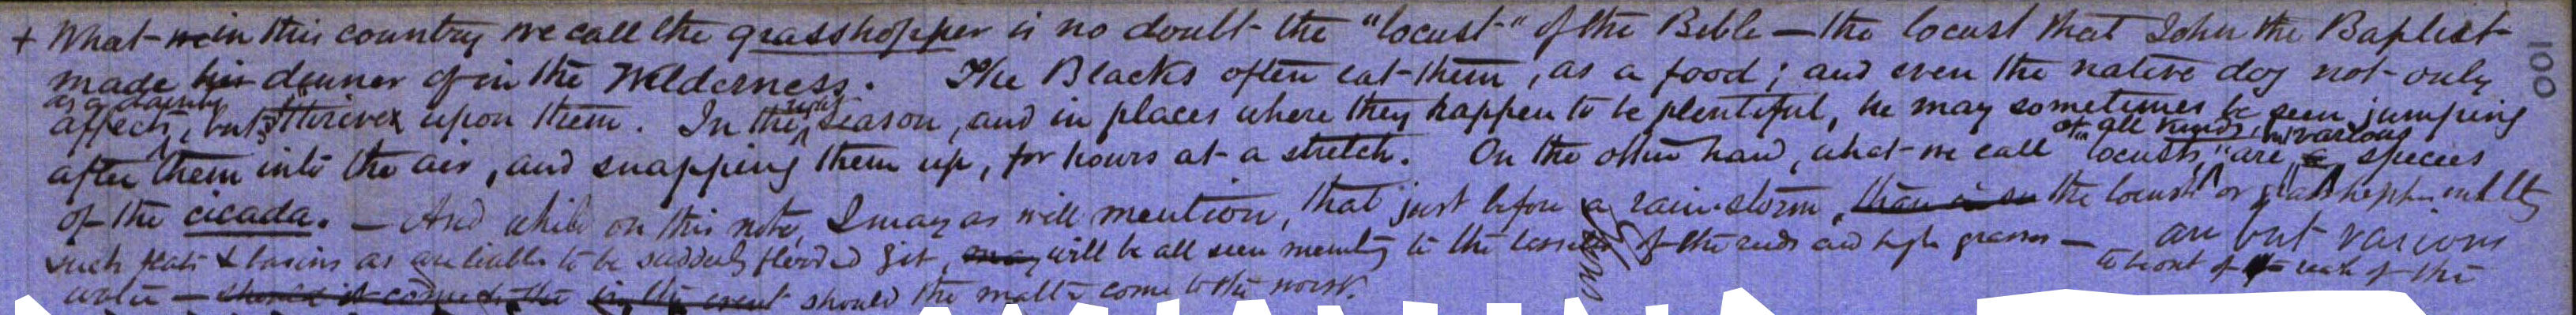 + What in this country we call the grasshopper is no doubt the "locust" of the Bible — the locust that John the Baptist
100
made his dinner of in the Wilderness. The Blacks often eat them, as a food; and even the native dog not only
as a dainty right
affects, but thrives upon them. In the season, and in places where they happen to be plentiful, he may sometimes be seen jumping
of all kinds, various
after them into the air, and snapping them up, for hours at a stretch. On the other hand, what we call "locusts," are species
of the cicada. — And while on this note, I may as well mention, that just before a rain-storm, the locusts or grasshoppers
are but various
such flats & basins as are liable to be suddenly flooded will be all seen mounting to the tassels of the reeds and high grasses —
reach of the
water — should the matter come to the worst.